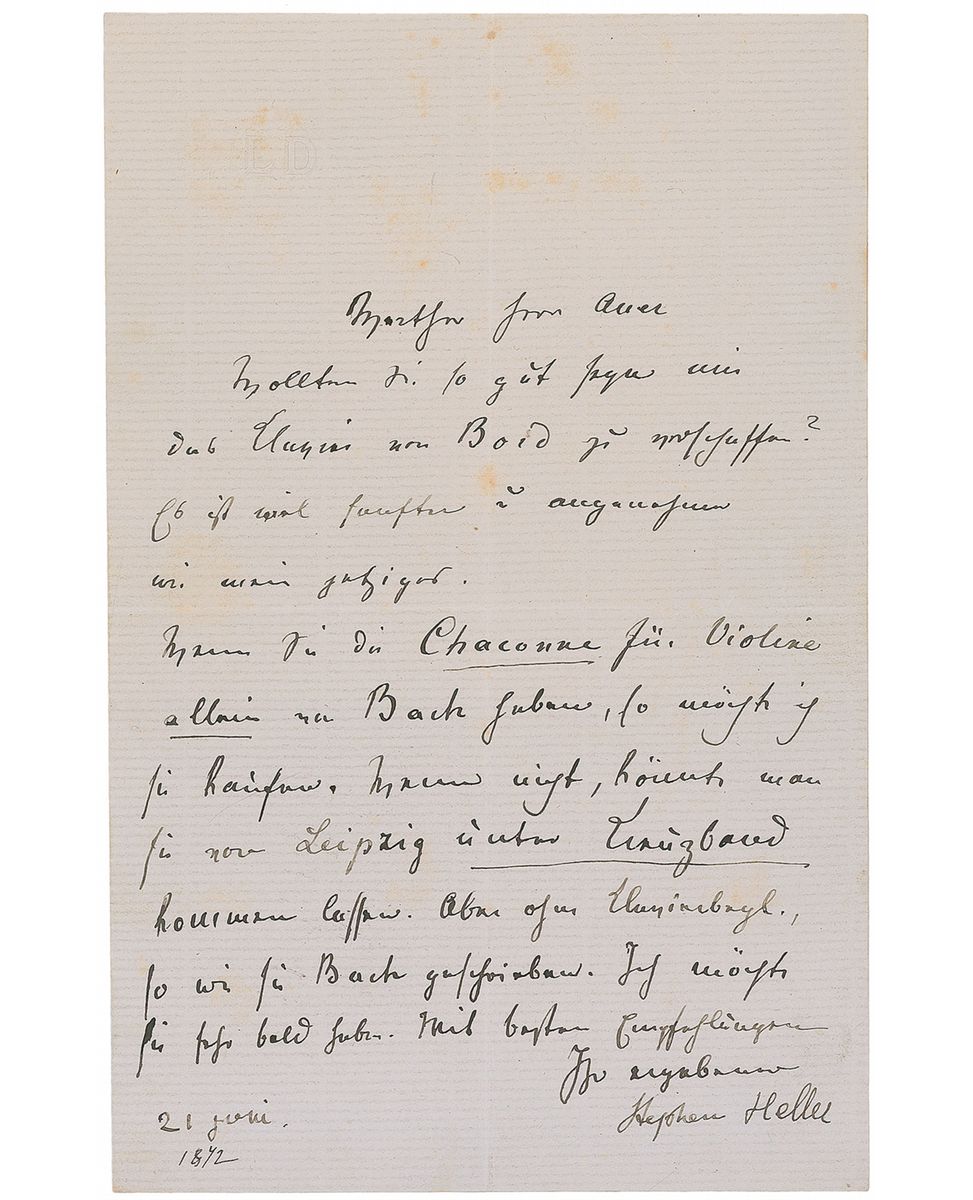 LD
Werther Herr Auer
Wollten Sie so gut seyn mir
das Clavier von Bord zu verschaffen?
Es ist viel sanfter u angenehmer
wie mein jetziges.
Wenn Sie die Chaconne für Violine
allein von Bach haben, so möcht ich
sie kaufen. Wenn nicht, könnte man
sie von Leipzig unter Kreuzband
kommen lassen. Aber ohne Clavierbegl.,
so wie sie Bach geschrieben. Ich möchte
sie sehr bald haben. Mit besten Empfehlungen
Ihr ergebener
Stephen Heller
21 juni.
1872